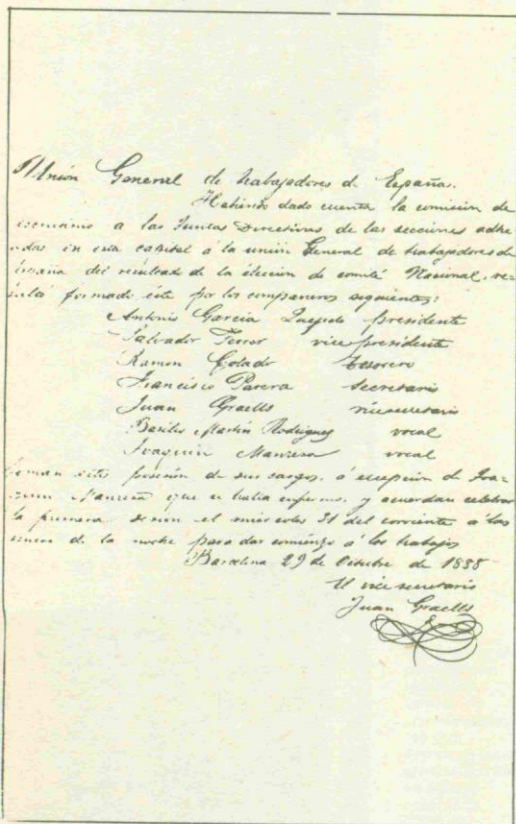 Unión General de trabajadores de Españas.
Habiendo dado cuenta la comision de
escrutinio a las Juntas Directivas de las secciones adhe
ridas en esta capital á la unión General de trabajadores de
España del resultado de la elección de comité Nacional, re-
sulta formado éste por los compañeros siguientes:
Antonio García Quejido presidente
Salvador Ferrer vice presidente
Ramon Colado tesorero
Francisco Parera secretario
Juan Graells vicesecretario
Basilio Martín Rodríguez vocal
Joaquín Manzera vocal
toman estos posesión de sus cargos, á excepción de Joa-
quin que se halla enfermo, y acuerdan celebrar
la primera sesión el miercoles 31 del corriente a las
de la noche para dar comienzo á los trabajos
Barcelona 29 de Octubre de 1888
El vicesecretario
Juan Graells